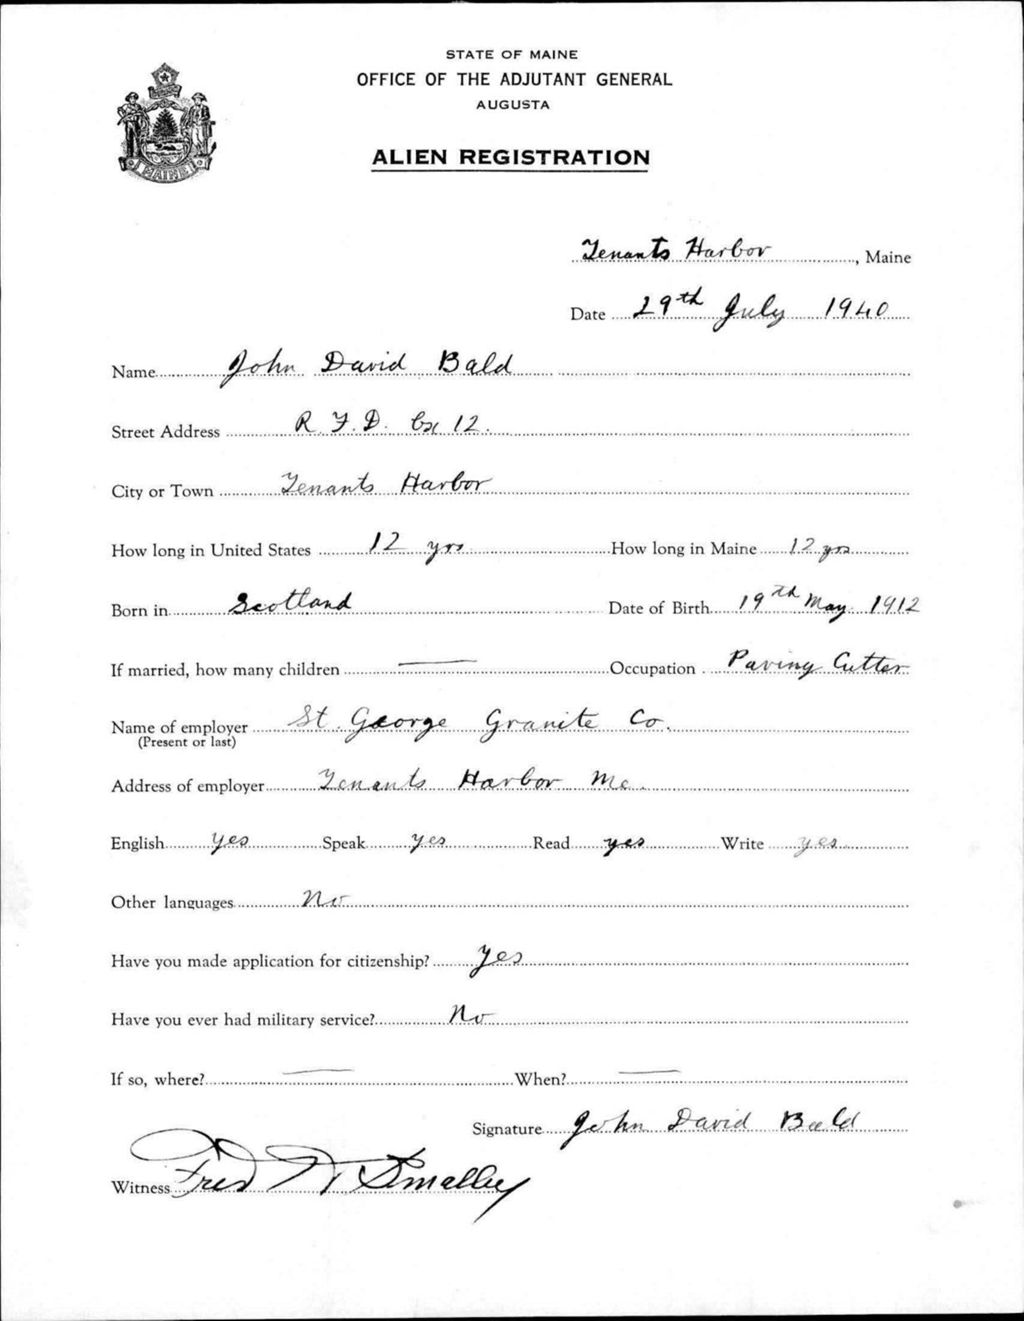 STATE OF MAINE
OFFICE OF THE ADJUTANT GENERAL
AUGUSTA
ALIEN REGISTRATION
MAINE
Tenants Harbor, Maine
Date 29th July 1940
Name John David Bald
Street Address R. F. D. Bx 12.
City or Town Tenants Harbor
How long in United States 12 yrs. How long in Maine 12 yrs
Born in Scotland Date of Birth 19th May 1912
If married, how many children — Occupation Paving Cutter
Name of employer St. George Granite Co.
(Present or last)
Address of employer Tenants Harbor Me.
English yes Speak yes Read yes Write yes
Other languages No
Have you made application for citizenship? yes
Have you ever had military service? No
If so, where? — When? —
Signature John David Bald
Witness Fred W Smalley